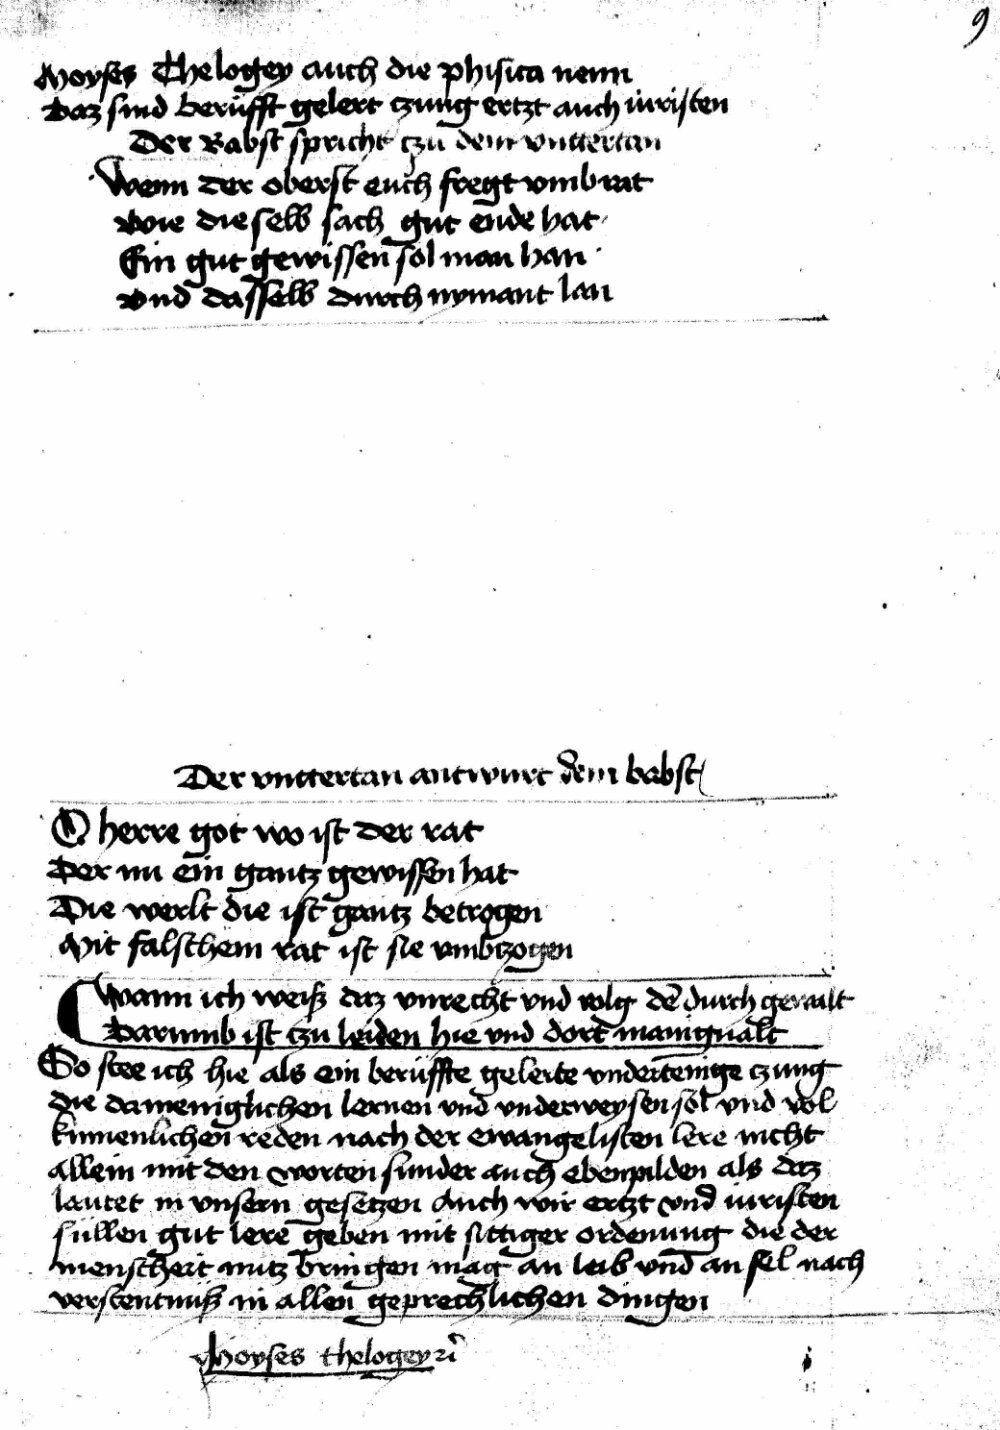 9
Moyses Thelogey auch die phisica nenn
Daz sind berüfft gelert czung ertzt auch iuristen
Der Babst spricht czu dem vnttertan
Wenn der oberst euch fregt vmb rat
Wie die selb sach gut ende hat
Ein gut gewissen sol man han
Vnd dasselb durch nymant lan
Der vnttertan antwurt dem babst
O herre got wo ist der rat
Der nu ein gantz gewissen hat
Die werlt die ist gantz betrogen
Mit falschem rat ist sie vmbzogen
Wann ich weiß daz vnrecht vnd volg dē durch gewalt
Darumb ist czu leiden hie vnd dort manigualt
So stee ich hie als ein berüffte gelerte vndertenige czung
die da meniglichen lernen vnd vnderweysen sol vnd vol
kumenlichen reden nach der ewangelisten lere nicht
allein mit den worten sunder auch ebenpilden als daz
lautet in vnsern gesetzen Auch wir ertzt vnd iuristen
süllen gut lere geben mit sittiger ordenung die der
menscheit nutz bringen mag an leib vnd an sel nach
verstentnuß in allen geprechlichen dingen
Moyses thelogey